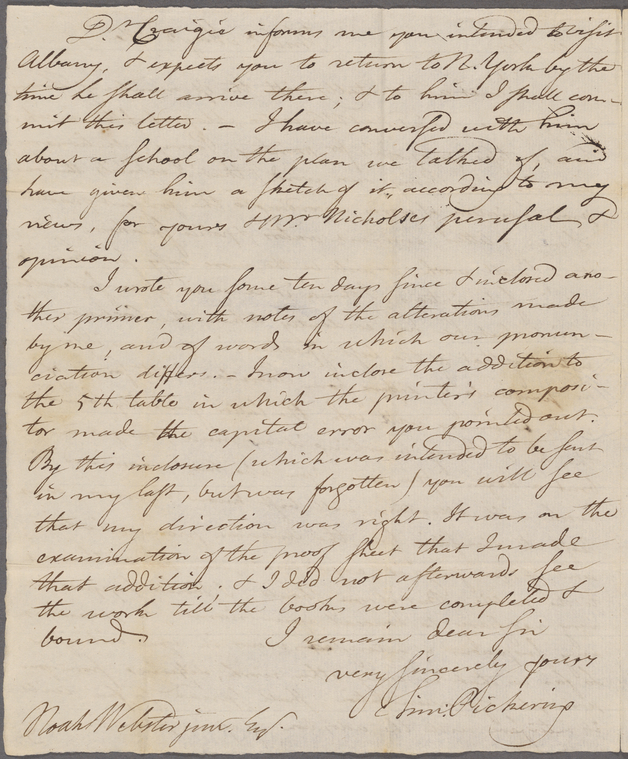 Dr. Craigie informs me you intended to visit
Albany, & expects you to return to N. York by the
time he shall arrive there; & to him I shall com-
mit this letter. – I have conversed with him
about a school on the plan we talked of, and
have given him a sketch of it, according to my
views, for yours & Mr. Nicholson's perusal &
opinion.
I wrote you some ten days since & inclosed ano-
ther primer, with notes of the alterations made
by me, and of words in which our pronun-
ciation differs. – I now inclose the addition to
the 5th table in which the printer's composi-
tor made the capital error you pointed out.
By this inclosure (which was intended to be sent
in my last, but was forgotten) you will see
that my direction was right. It was on the
examination of the proof sheet that I made
that addition. & I did not afterwards see
the work till the books were completed &
bound.
I remain dear Sir
very sincerely yours
Tim: Pickering
Noah Webster junr. Esqr.